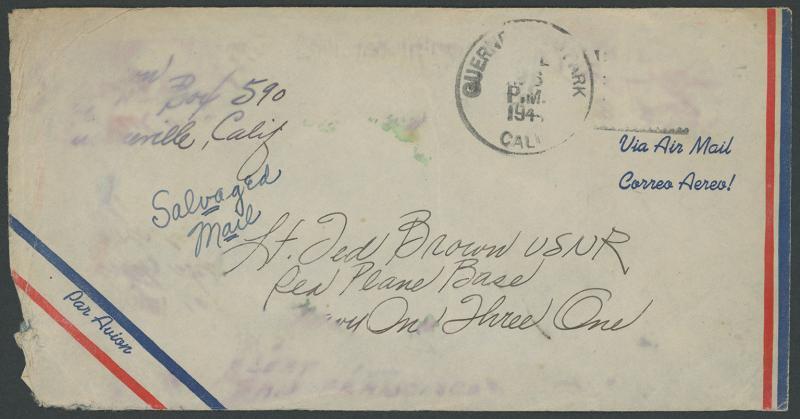 Box 590
ville, Calif
GUERN PARK
P.M.
194
CAL
Via Air Mail
Correo Aereo!
Salvaged
Mail
Lt. Ted Brown USNR
Sea Plane Base
On Three One
Par Avion
FLEET
SAN FRANCISCO